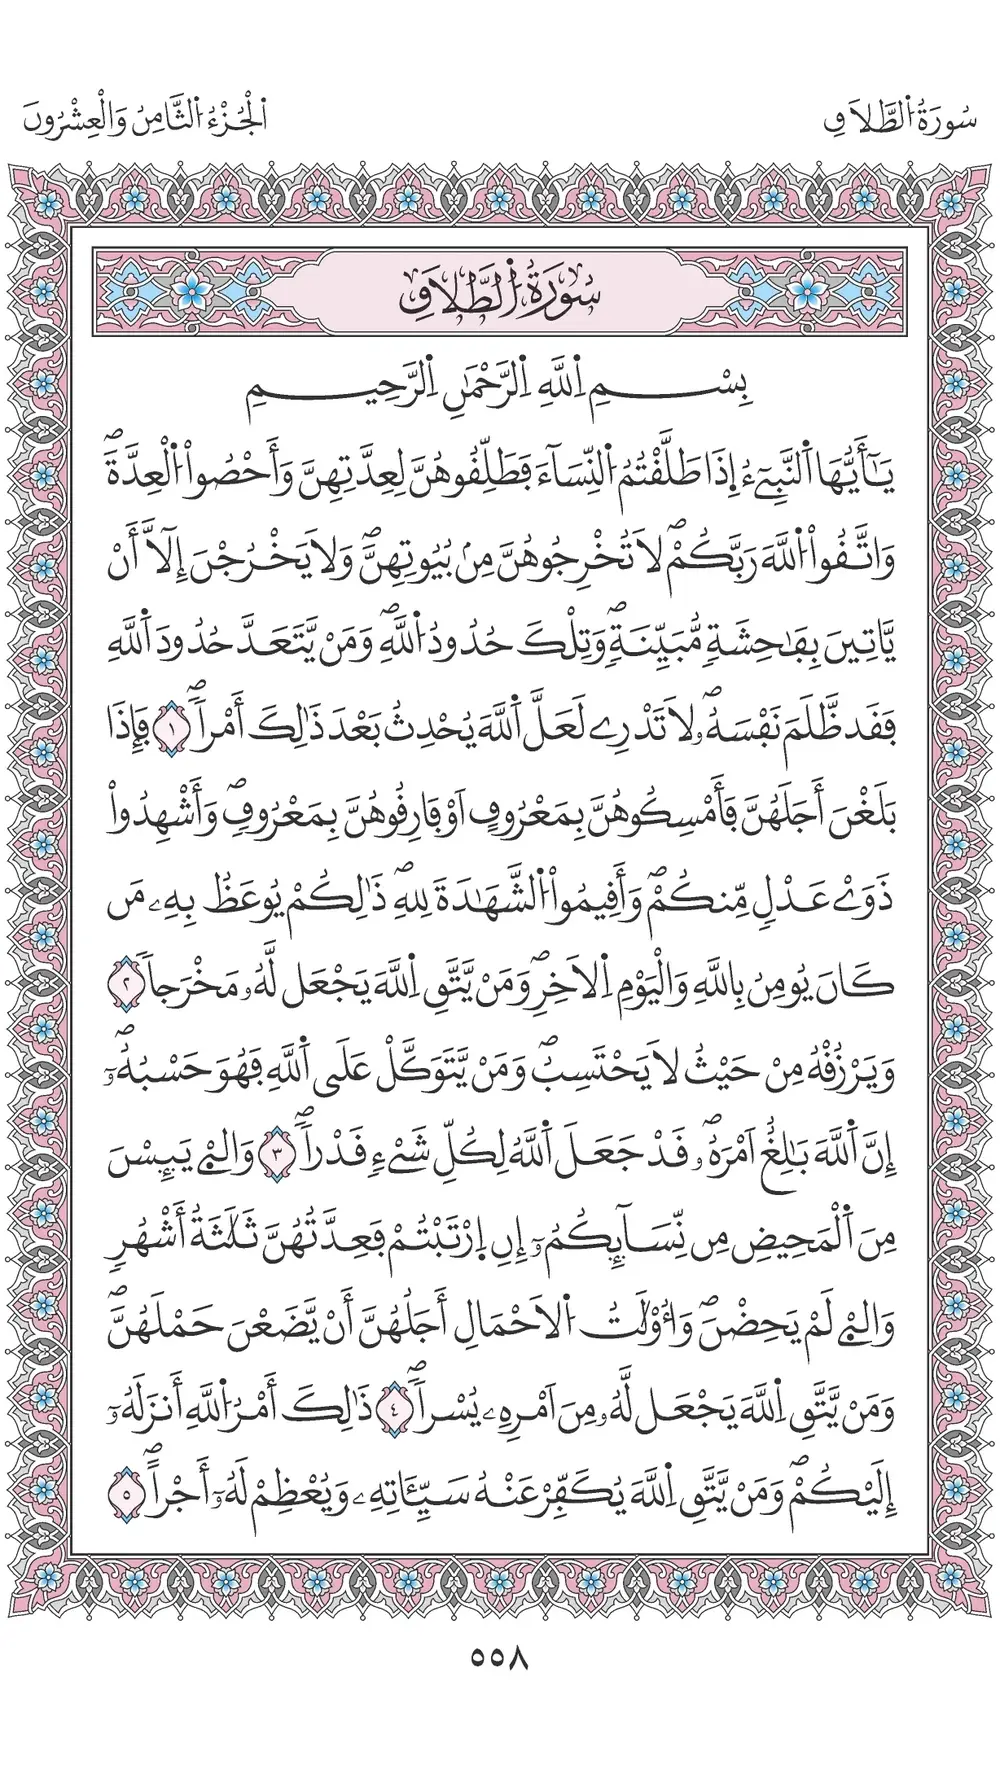 سُورَةُ اُ۬لطَّلَٰقِ
اَ۬لْجُزْءُ اُ۬لثَّامِنُ وَالْعِشْرُونَ
سُورَةُ اُ۬لطَّلَٰقِ
بِسْمِ اِ۬للَّهِ اِ۬لرَّحْمَٰنِ اِ۬لرَّحِيمِ
يَٰٓأَيُّهَا اَ۬لنَّبِےٓءُ اِ۪ذَا طَلَّقْتُمُ اُ۬لنِّسَآءَ فَطَلِّقُوهُنَّ لِعِدَّتِهِنَّ وَأَحْصُواْ اُ۬لْعِدَّةَۖ
وَاتَّقُواْ اُ۬للَّهَ رَبَّكُمْۖ لَا تُخْرِجُوهُنَّ مِنۢ بُيُوتِهِنَّۖ وَلَا يَخْرُجْنَ إِلَّآ أَنْ
يَّاتِينَ بِفَٰحِشَةٖ مُّبَيِّنَةٖۖ وَتِلْكَ حُدُودُ اُ۬للَّهِۖ وَمَنْ يَّتَعَدَّ حُدُودَ اَ۬للَّهِ
فَقَد ظَّلَمَ نَفْسَهُۥۖ لَا تَدْرِے لَعَلَّ اَ۬للَّهَ يُحْدِثُ بَعْدَ ذَٰلِكَ أَمْراٗۖ ١ فَإِذَا
بَلَغْنَ أَجَلَهُنَّ فَأَمْسِكُوهُنَّ بِمَعْرُوفٍ اَوْ فَارِقُوهُنَّ بِمَعْرُوفٖۖ وَأَشْهِدُواْ
ذَوَےْ عَدْلٖ مِّنكُمْۖ وَأَقِيمُواْ اُ۬لشَّهَٰدَةَ لِلهِۖ ذَٰلِكُمْ يُوعَظُ بِهِۦ مَن
كَانَ يُومِنُ بِاللَّهِ وَالْيَوْمِ اِ۬لَاخِرِۖ وَمَنْ يَّتَّقِ اِ۬للَّهَ يَجْعَل لَّهُۥ مَخْرَجاٗ ٢
وَيَرْزُقْهُ مِنْ حَيْثُ لَا يَحْتَسِبُۖ وَمَنْ يَّتَوَكَّلْ عَلَى اَ۬للَّهِ فَهُوَ حَسْبُهُۥٓۖ
إِنَّ اَ۬للَّهَ بَٰلِغٌ اَمْرَهُۥۖ قَدْ جَعَلَ اَ۬للَّهُ لِكُلِّ شَےْءٖ قَدْراٗۖ ٣ وَالَٰٓـِٔے يَئِسْنَ
مِنَ اَ۬لْمَحِيضِ مِن نِّسَآئِكُمُۥٓ إِنِ اِ۪رْتَبْتُمْ فَعِدَّتُهُنَّ ثَلَٰثَةُ أَشْهُرٖ
وَالَٰٓـِٔے لَمْ يَحِضْنَۖ وَأُوْلَٰتُ اُ۬لَاحْمَالِ أَجَلُهُنَّ أَنْ يَّضَعْنَ حَمْلَهُنَّۖ
وَمَنْ يَّتَّقِ اِ۬للَّهَ يَجْعَل لَّهُۥ مِنَ اَمْرِهِۦ يُسْراٗۖ ٤ ذَٰلِكَ أَمْرُ اُ۬للَّهِ أَنزَلَهُۥٓ
إِلَيْكُمْۖ وَمَنْ يَّتَّقِ اِ۬للَّهَ يُكَفِّرْ عَنْهُ سَيِّـَٔاتِهِۦ وَيُعْظِمْ لَهُۥٓ أَجْراًۖ ٥
٥٥٨